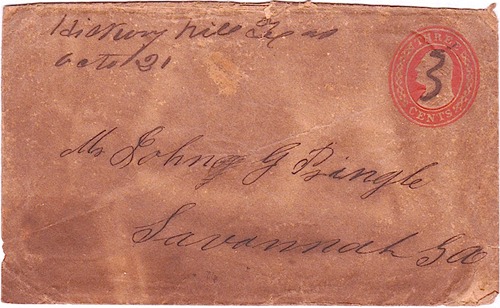 Hickory Hill Texas
Octo 21
THREE
3
CENTS
Mr Johng G Pringle
Savannah Ga